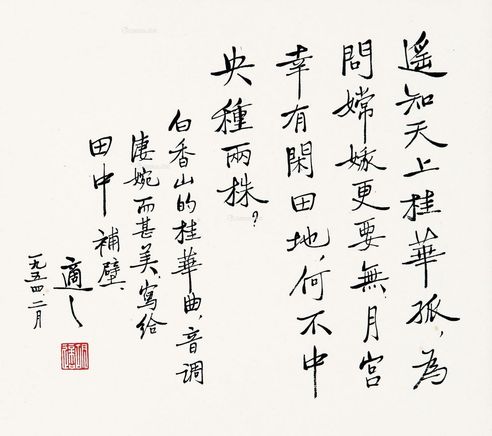 遙知天上桂華孤，為
問嫦娥更要無。月宮
幸有閑田地，何不中
央種兩株？
白香山的桂華曲，音調
淒婉而甚美，寫給
田中補壁。
適之
一九五四．二月